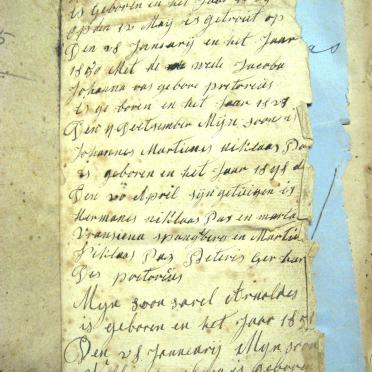 is geboren en het Jaar 18
op den 12 Maij is getrout op
Den 28 Januarij en het Jaar
1850 Met de wede Jacoba
Johanna vas gebore pretorius
is ge boren en het Jaar 1828
Den 9 Deitsember Mijn soon
Johannes Martienes niklaas Pas
is geboren en het Jaar 18 de
Den 20 April sijn getuigen is
hermanes niklaas Pas en maria
Vransiena spangberg en Martin
Niklaas Pas Pieteres Ger har
Des pretorius
Mijn soon sarel Arnoldes
is geboren en het Jaar 185
Den 28 Janneuarij Mijn soon
is geboren